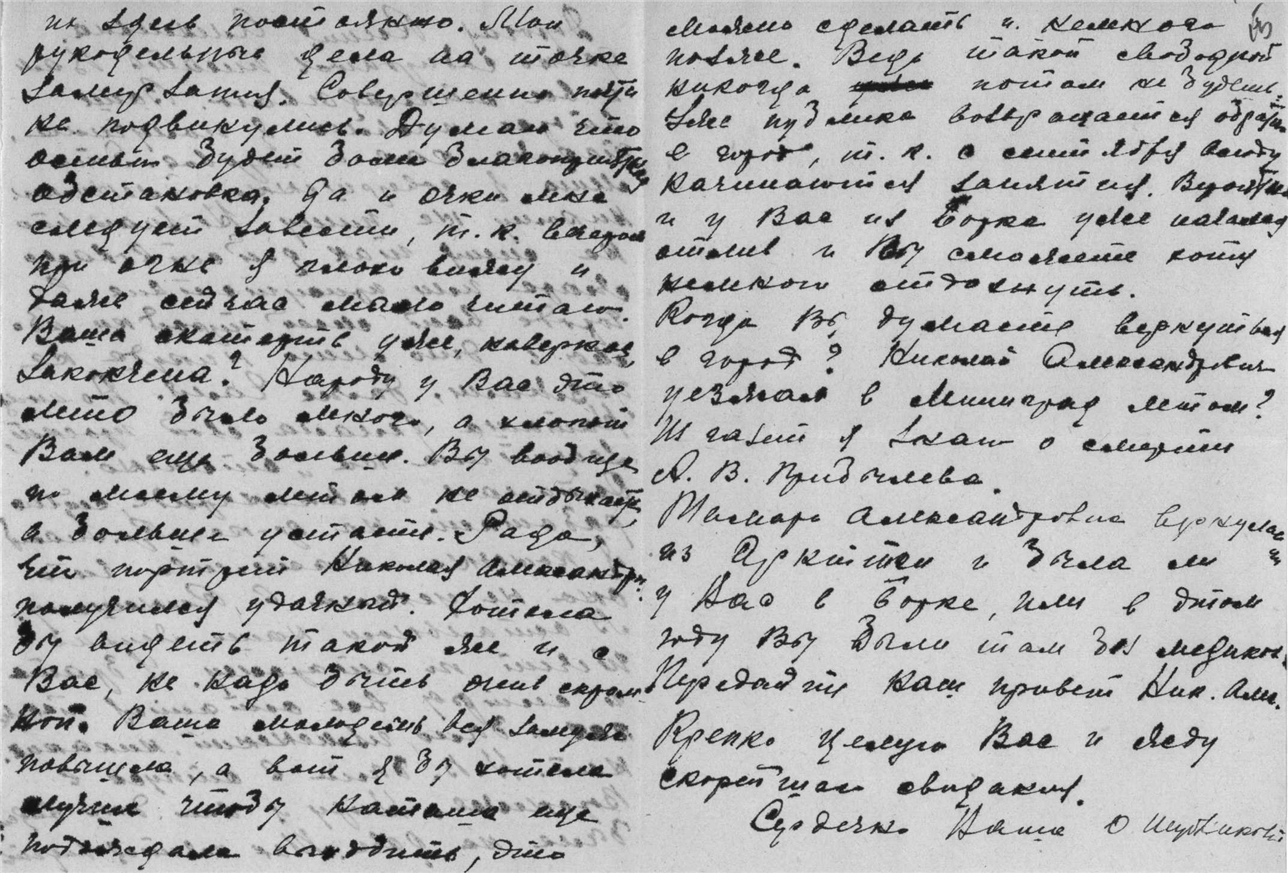 но здесь постоянно. Мои
рукодельные дела на точке
замерзания. Совершенно почти
не подвинулись. Думаю что
осенью будет более благоприятная
обстановка, да и очки мне
следует завести, т.к. вечером
при огне я плохо вижу и
даже сейчас мало читаю.
Ваша скатерть уже, наверное,
закончена? Народу у Вас это
лето было много, а хлопот
Вам еще больше. Вы вообще
по моему летом не отдыхаете,
а больше устаете. Рада,
что портрет Николая Александр.
получился удачный. Хотела
бы видеть такой же и с
Вас, не надо быть очень скром-
ной. Ваша молодежь вся замуж
повышла, а вот я бы хотела
лучше чтобы Наташа еще
подождала выходить, это
можно сделать и немного
позже. Ведь такой свободной
никогда потом не будешь.
Уже публика возвращается обратно
в город, т.к. с сентября всюду
начинаются занятия. Вероятно
и у Вас из Борка уже начался
отлив и Вы сможете хотя
немного отдохнуть.
Когда Вы думаете вернуться
в город? Николай Александрович
уезжал в Ленинград летом?
Из газет я знаю о смерти
А. В. Прибылева.
Тамара Александровна вернулась
из Арктики и была ли
у Вас в Борке, или в этом
году Вы были там без медиков.
Передайте наш привет Ник. Алек.
Крепко целую Вас и жду
скорейшего свидания.
Сердечно Ваша О